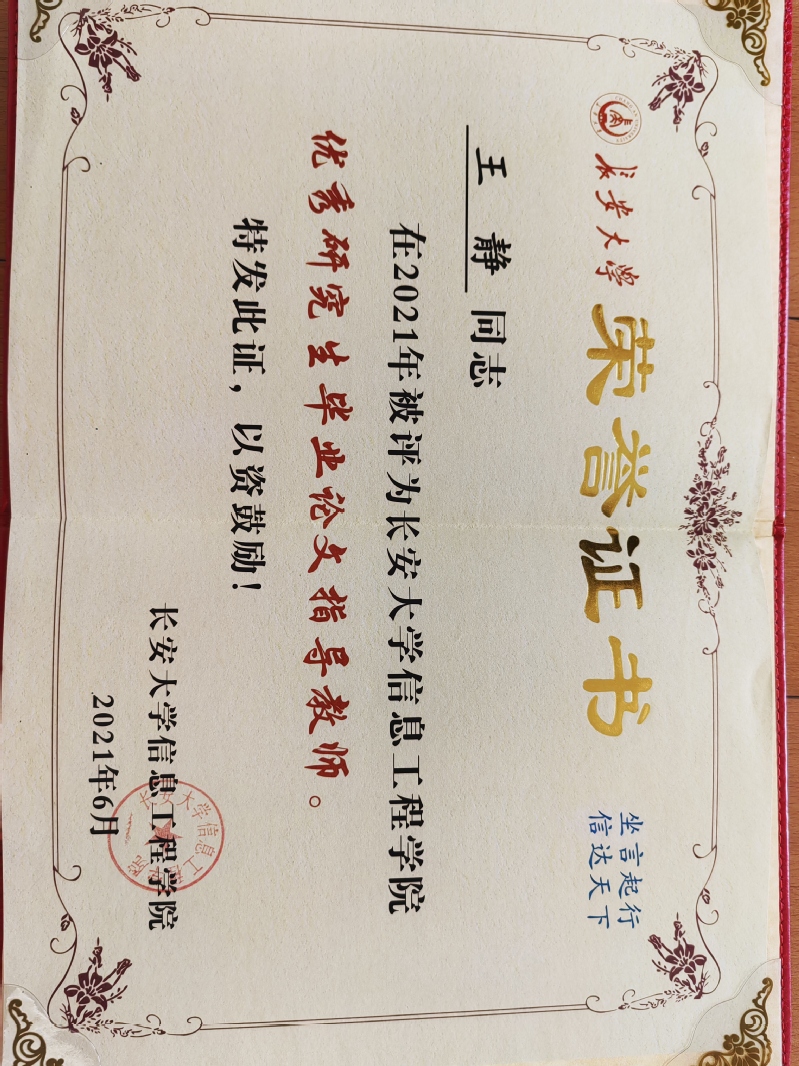 长安大学
荣誉证书
坐言起行
信达天下
王 静 同志
在2021年被评为长安大学信息工程学院
优秀研究生毕业论文指导教师。
特发此证，以资鼓励！
长安大学信息工程学院
2021年6月
长安大学信息工程学院